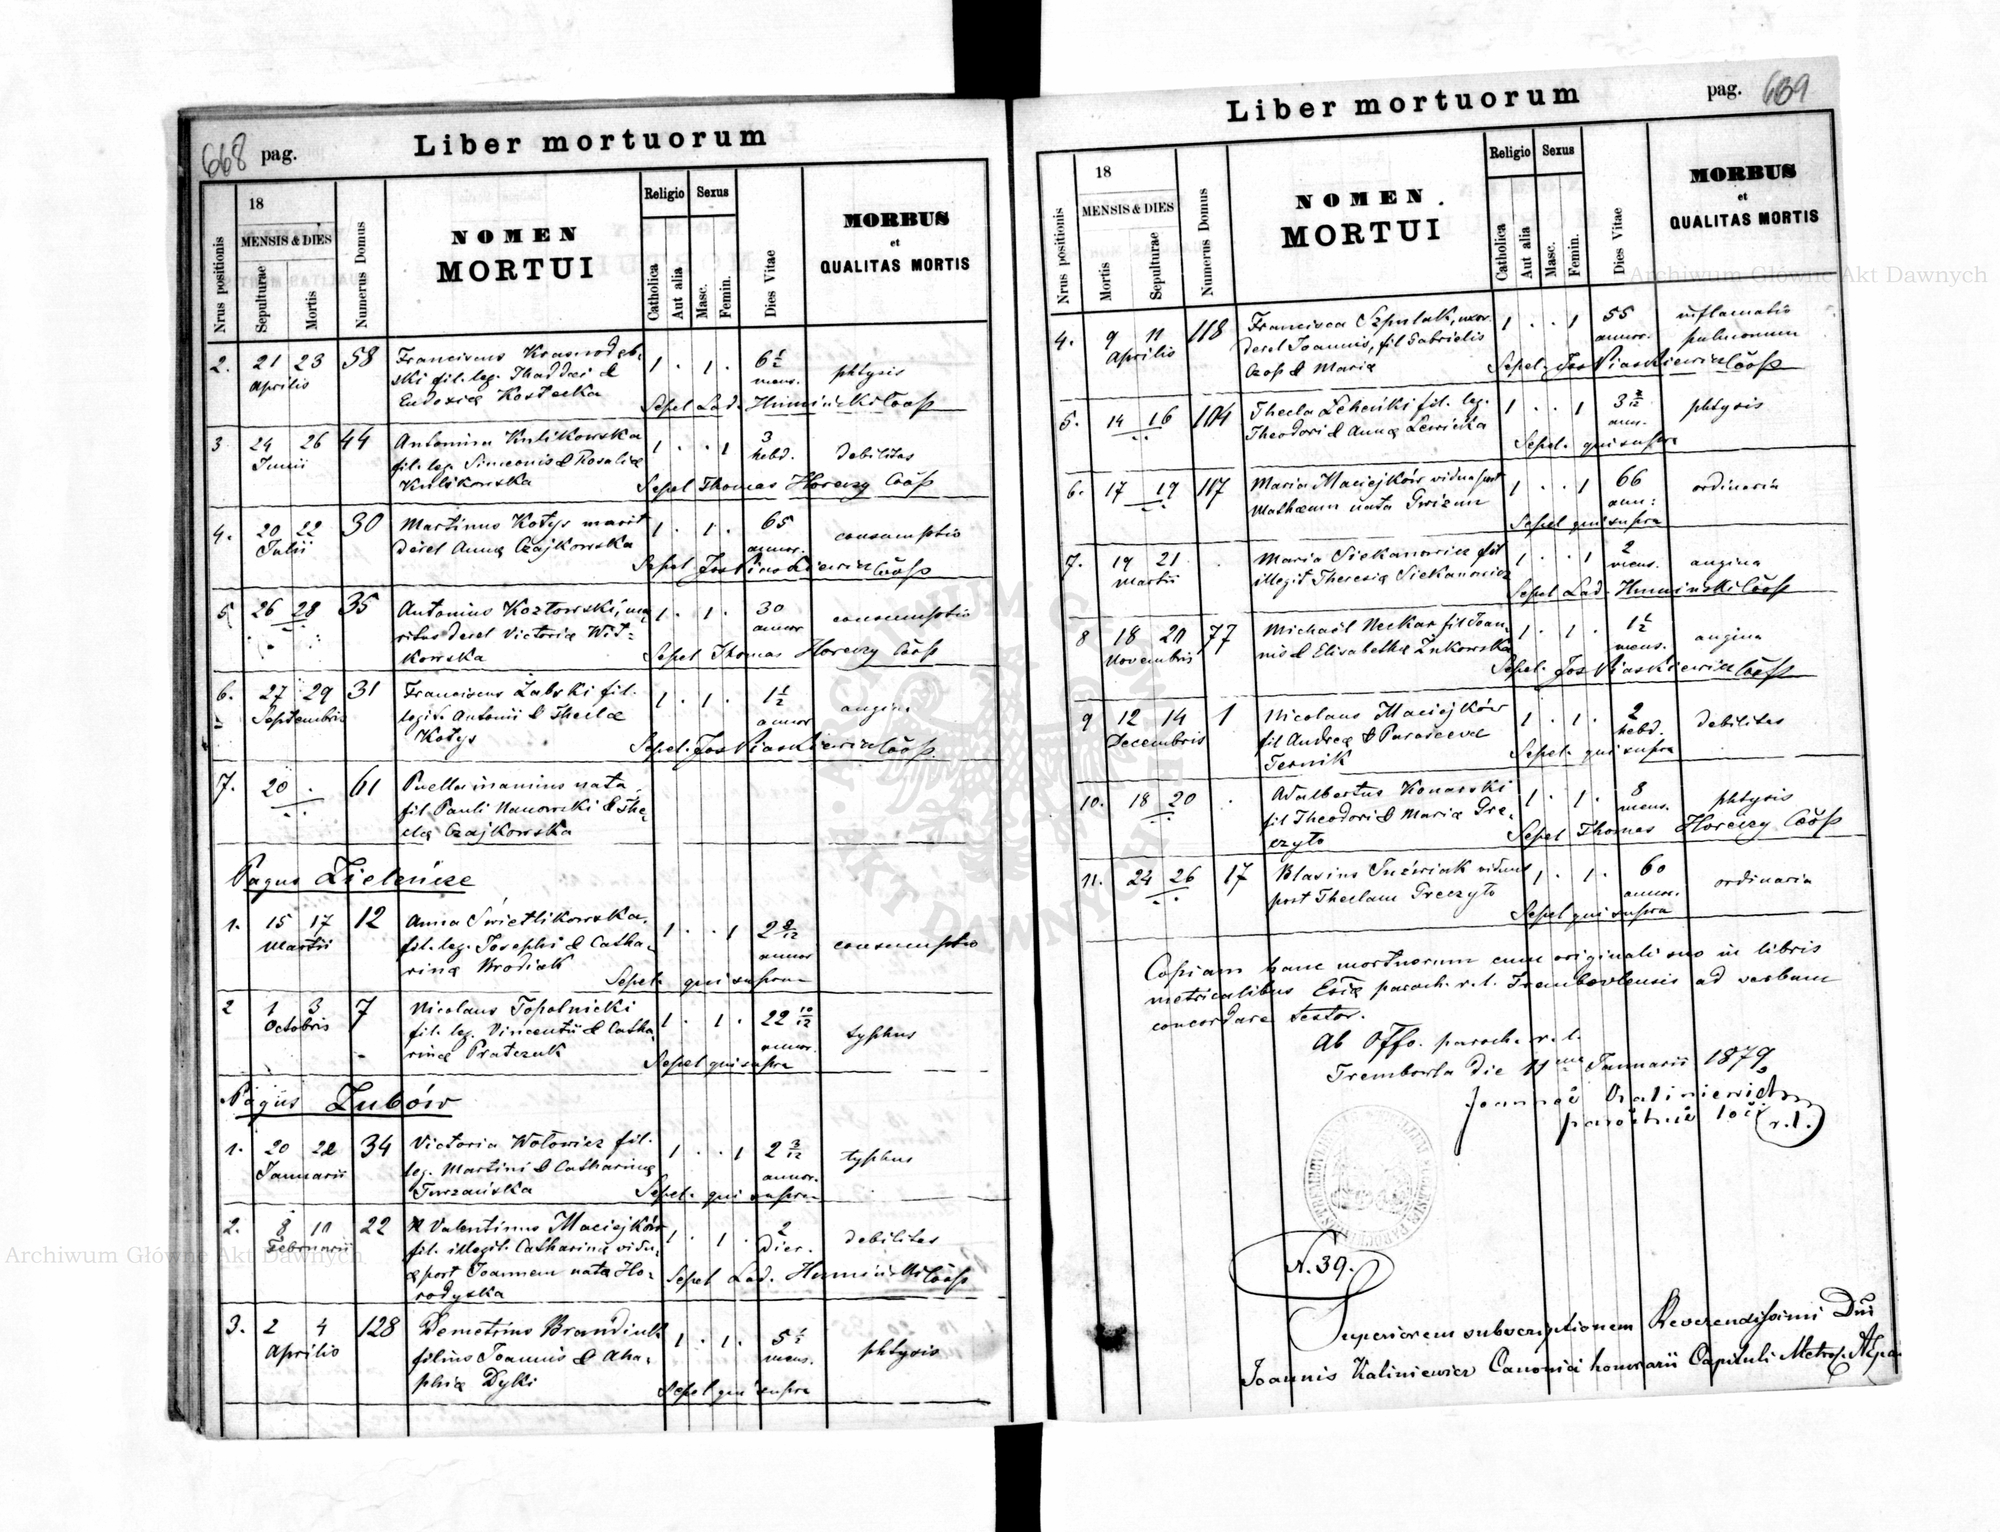 668 pag.
Liber mortuorum
Nrus positionis
18
MENSIS & DIES
Sepulturae
Mortis
Numerus Domus
NOMEN
MORTUI
Religio
Sexus
Catholica
Aut alia
Masc.
Femin.
Dies Vitae
MORBUS
et
QUALITAS MORTIS
2. 21 23 58 Franciscus Krasnodęb- 1 . 1 . 6½
Aprilis ski fil. leg. Thaddæi & mens. phtysis
Eudoxiæ Kostecka Sepel Lad. Humiński Coop
3 24 26 44 Antonina Kulikowska 1 . . 1 3
Junii fil. leg. Simeonis & Rosaliæ hebd. debilitas
Kulikowska Sepel Thomas Horeczy Coop
4. 20 22 30 Martinus Kotys marit 1 . 1 . 65
Julii derel Annæ Czajkowska annor. consumptio
Sepel Jos Piaskiewicz Coop
5 26 28 35 Antonius Kozłowski, ma 1 . 1 . 30
ritus derel Victoriæ Wit- annor consumptio
kowska Sepel Thomas Horeczy Coop
6. 27 29 31 Franciscus Żabski fil. 1 . 1 . 1½
Septembris legit. Antonii & Theclæ annor angina
Kotys Sepel. Jos Piaskiewicz Coop.
7. 20 . 61 Puella inanimis nata
fil Pauli Nanowski & The-
clæ Czajkowska
Pagus Zieleńcze
1. 15 17 12 Anna Świetlikowska 1 . . 1 2
Martii fil. leg. Josephi & Catha- annor consumptio
rinæ Brodiak Sepel. qui supra
2 1 3 7 Nicolaus Topolnicki 1 . 1 . 22 10/12
Octobris fil. leg. Vincentii & Catha- annor. typhus
rinæ Pratczuk Sepel qui supra
Pagus Zubów
1. 20 22 34 Victoria Wołowicz fil. 1 . . 1 2 3/12
Januarii leg. Martini & Catharinæ annor. typhus
Turzańska Sepel. qui supra
2. 8 10 22 Valentinus Maciejków 1 . 1 . 2
Februarii fil. illegit. Catharinæ vidu- dier. debilitas
æ post Joannem nata Ho- Sepel Lad. Humiński Coop
rodyska
3. 2 4 128 Demetrius Brandiuk 1 . 1 . 5½
Aprilis filius Joannis & Aha- mens. phtysis
phiæ Dyki Sepel qui supra
Liber mortuorum
pag. 669
Nrus positionis
18
MENSIS & DIES
Mortis
Sepulturae
Numerus Domus
NOMEN
MORTUI
Religio
Sexus
Catholica
Aut alia
Masc.
Femin.
Dies Vitae
MORBUS
et
QUALITAS MORTIS
4. 9 11 118 Francisca Szpulak, uxor 1 . . 1 55 inflamatio
Aprilis derel Joannis, fil Gabrielis annor. pulmonum
Czop & Maria Sepel. Jos Piaskiewicz Coop
5. 14 16 104 Thecla fil. leg. 1 . . 1 3 phtysis
Theodori & Annæ Lewicka ann.
Sepel. qui supra
6. 17 19 117 Maria Maciejków vidua post 1 . . 1 66 ordinaria
Mathæum nata Gwizun ann:
Sepel qui supra
7. 19 21 . Maria Siekanowicz fil 1 . . 1 2 angina
Martii illegit Theresiæ Siekanowicz mens.
Sepel Lad. Humiński Coop
8 18 20 77 Michaël Neckar fil Joan- 1 . 1 . 1½ angina
Novembris nis & Elisabethæ Żukowska mens.
Sepel. Jos Piaskiewicz Coop
9 12 14 1 Nicolaus Maciejków 1 . 1 . 2 debilitas
Decembris fil Andreæ & Parasceva hebd.
Ternik Sepel. qui supra
10. 18 20 . Adalbertus Konarski 1 . 1 . 8 phtysis
fil Theodori & Mariæ Gre- mens.
czyło Sepel Thomas Horeczy Coop
11. 24 26 17 Blasius Juźwiak viduus 1 . 1 . 60 ordinaria
post Theclam Greczyło annor.
Sepel qui supra
Copiam hanc mortuorum cum originali suo in libris
metricalibus Eccliæ paroch. r. l. Trembowlensis ad verbum
concordare testor.
Ab Offo. paroch. r. l.
Trembowla die 11ma Januarii 1879
Joannes Kaliniewicz
parochus loci
r. l.
N. 39.
Superiorem subscriptionem Reverendissimi Dni
Joannis Kaliniewicz Canonici honorarii Capituli Metrop.
Archiwum Główne Akt Dawnych
Archiwum Główne Akt Dawnych
ARCHIWUM GŁÓWNE AKT DAWNYCH